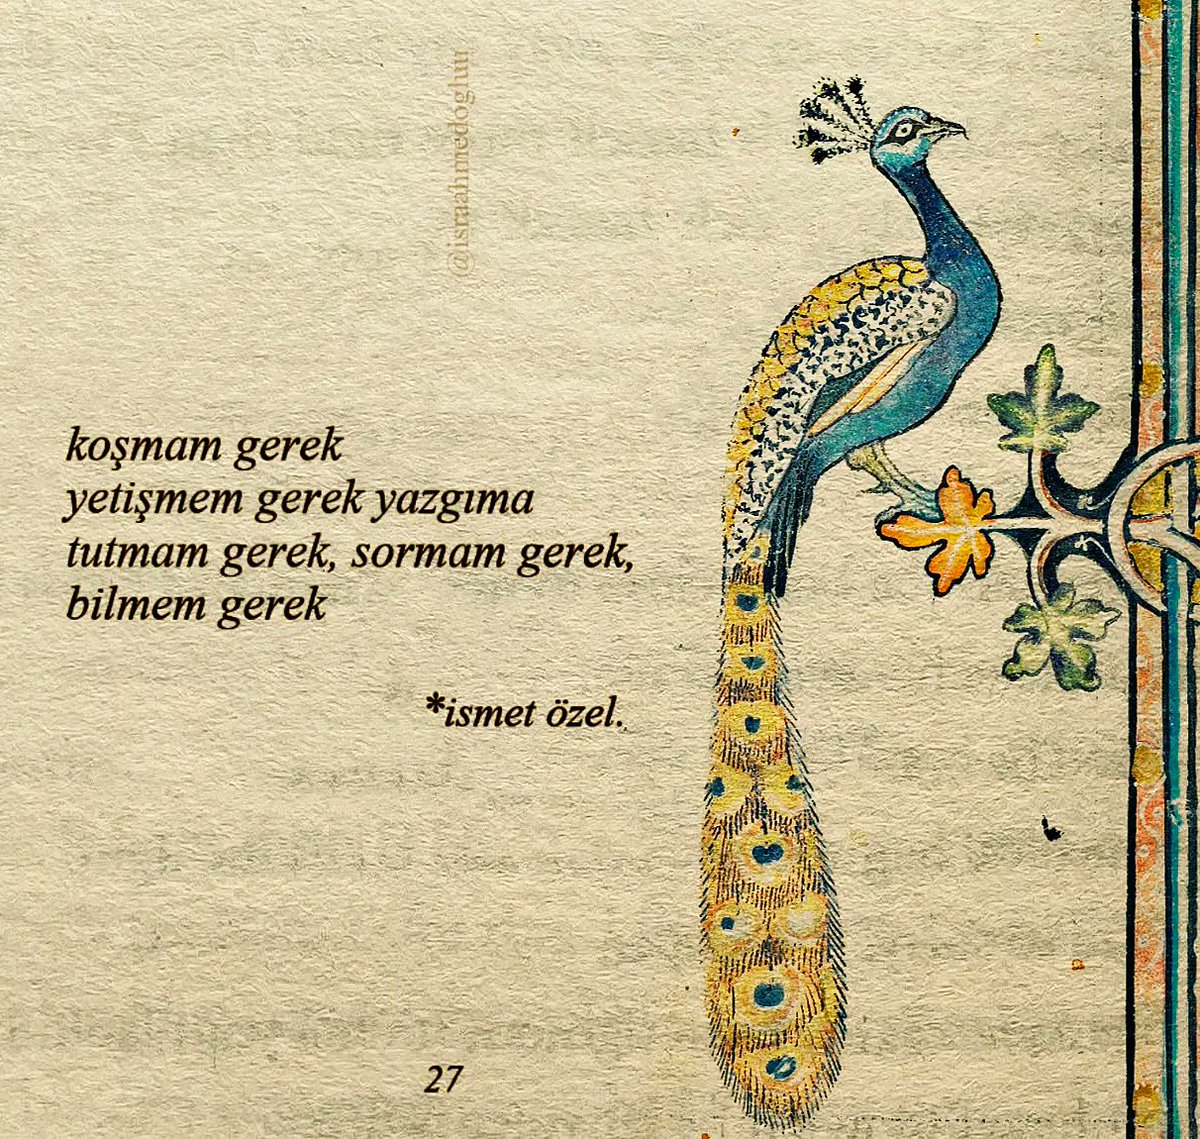 @israahmedogluu
koşmam gerek
yetişmem gerek yazgıma
tutmam gerek, sormam gerek,
bilmem gerek
*ismet özel.
27